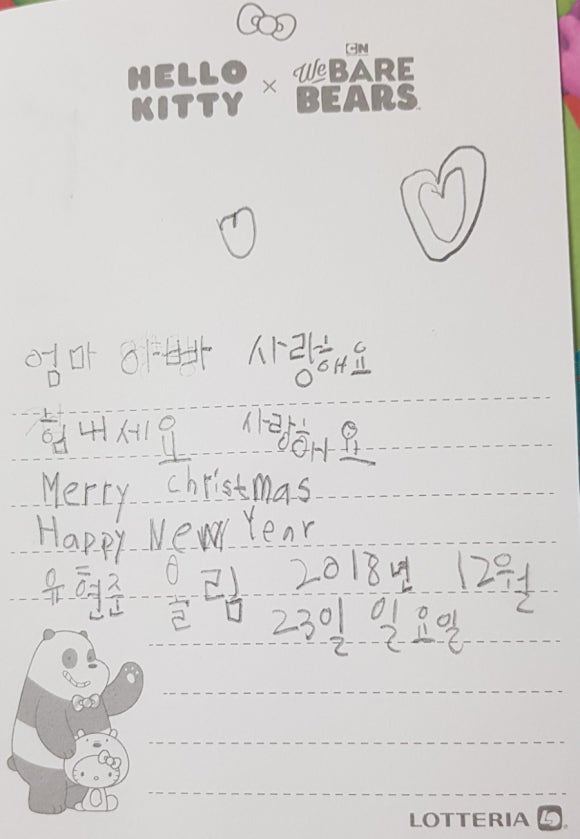 HELLO KITTY × CN We BARE BEARS
엄마 아빠 사랑해요
힘내세요 사랑해요
Merry christmas
Happy New Year
유현준 올림 2018년 12월
23일 일요일
LOTTERIA